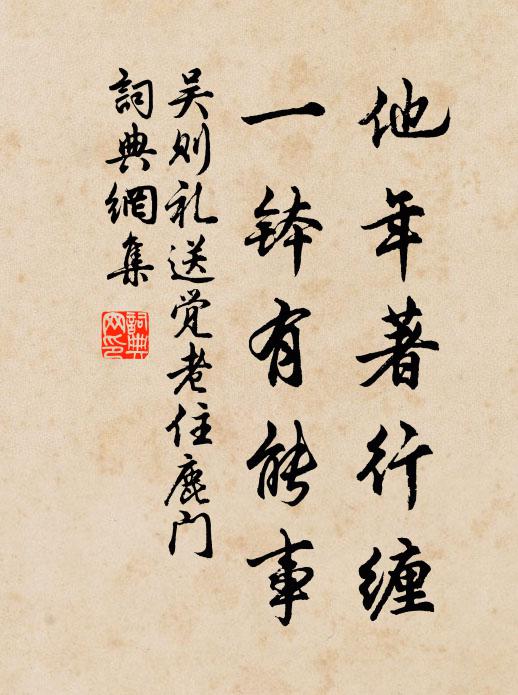 他年著行缠
一钵有能事
吴则礼送觉老住鹿门
詞典網集
詞典網印